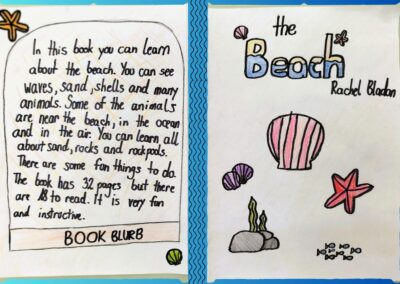 In this book you can learn
about the beach. You can see
waves, sand, shells and many
animals. Some of the animals
are near the beach, in the ocean
and in the air. You can learn all
about sand, rocks and rockpools.
There are some fun things to do.
The book has 32 pages but there
are 18 to read. It is very fun
and instructive.
BOOK BLURB
the
Beach
Rachel Bladon